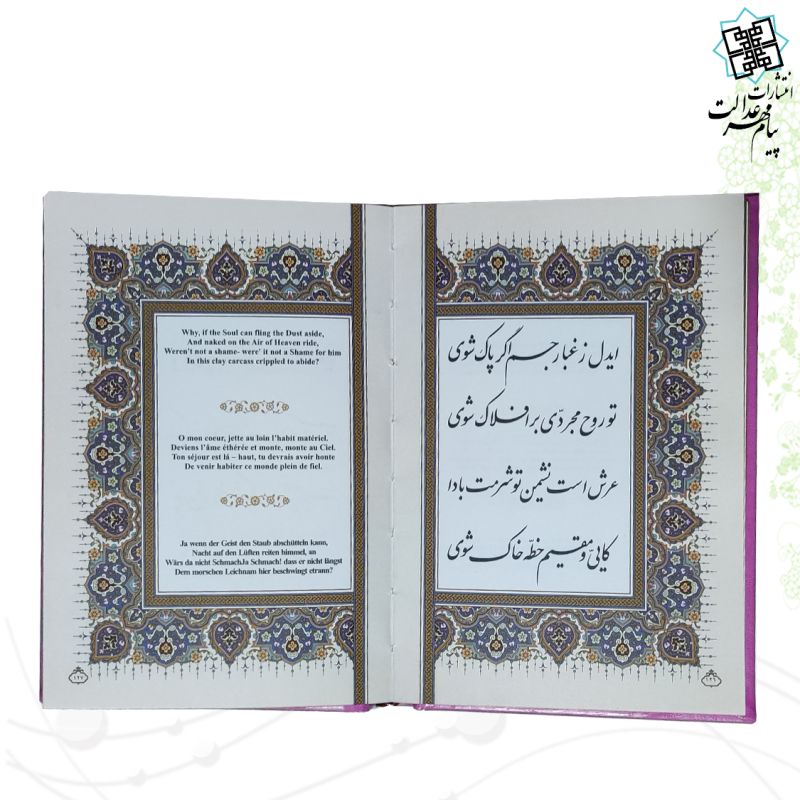 انتشارات
پیام مهر عدالت
ایدل ز غبار جسم اگر پاک شوی
تو روح مجردی بر افلاک شوی
عرش است نشیمن تو شرمت بادا
کایی و مقیم خطه خاک شوی
۱۲۶
Why, if the Soul can fling the Dust aside,
And naked on the Air of Heaven ride,
Weren't not a shame- were' it not a Shame for him
In this clay carcass crippied to abide?
O mon coeur, jette au loin l'habit matériel.
Deviens l'âme éthérée et monte, monte au Ciel.
Ton séjour est lá – haut, tu devrais avoir honte
De venir habiter ce monde plein de fiel.
Ja wenn der Geist den Staub abschütteln kann,
Nacht auf den Lüften reiten himmel, an
Wärs da nicht SchmachJa Schmach! dass er nicht längst
Dem morschen Leichnam hier beschwingt etrann?
۱۲۷